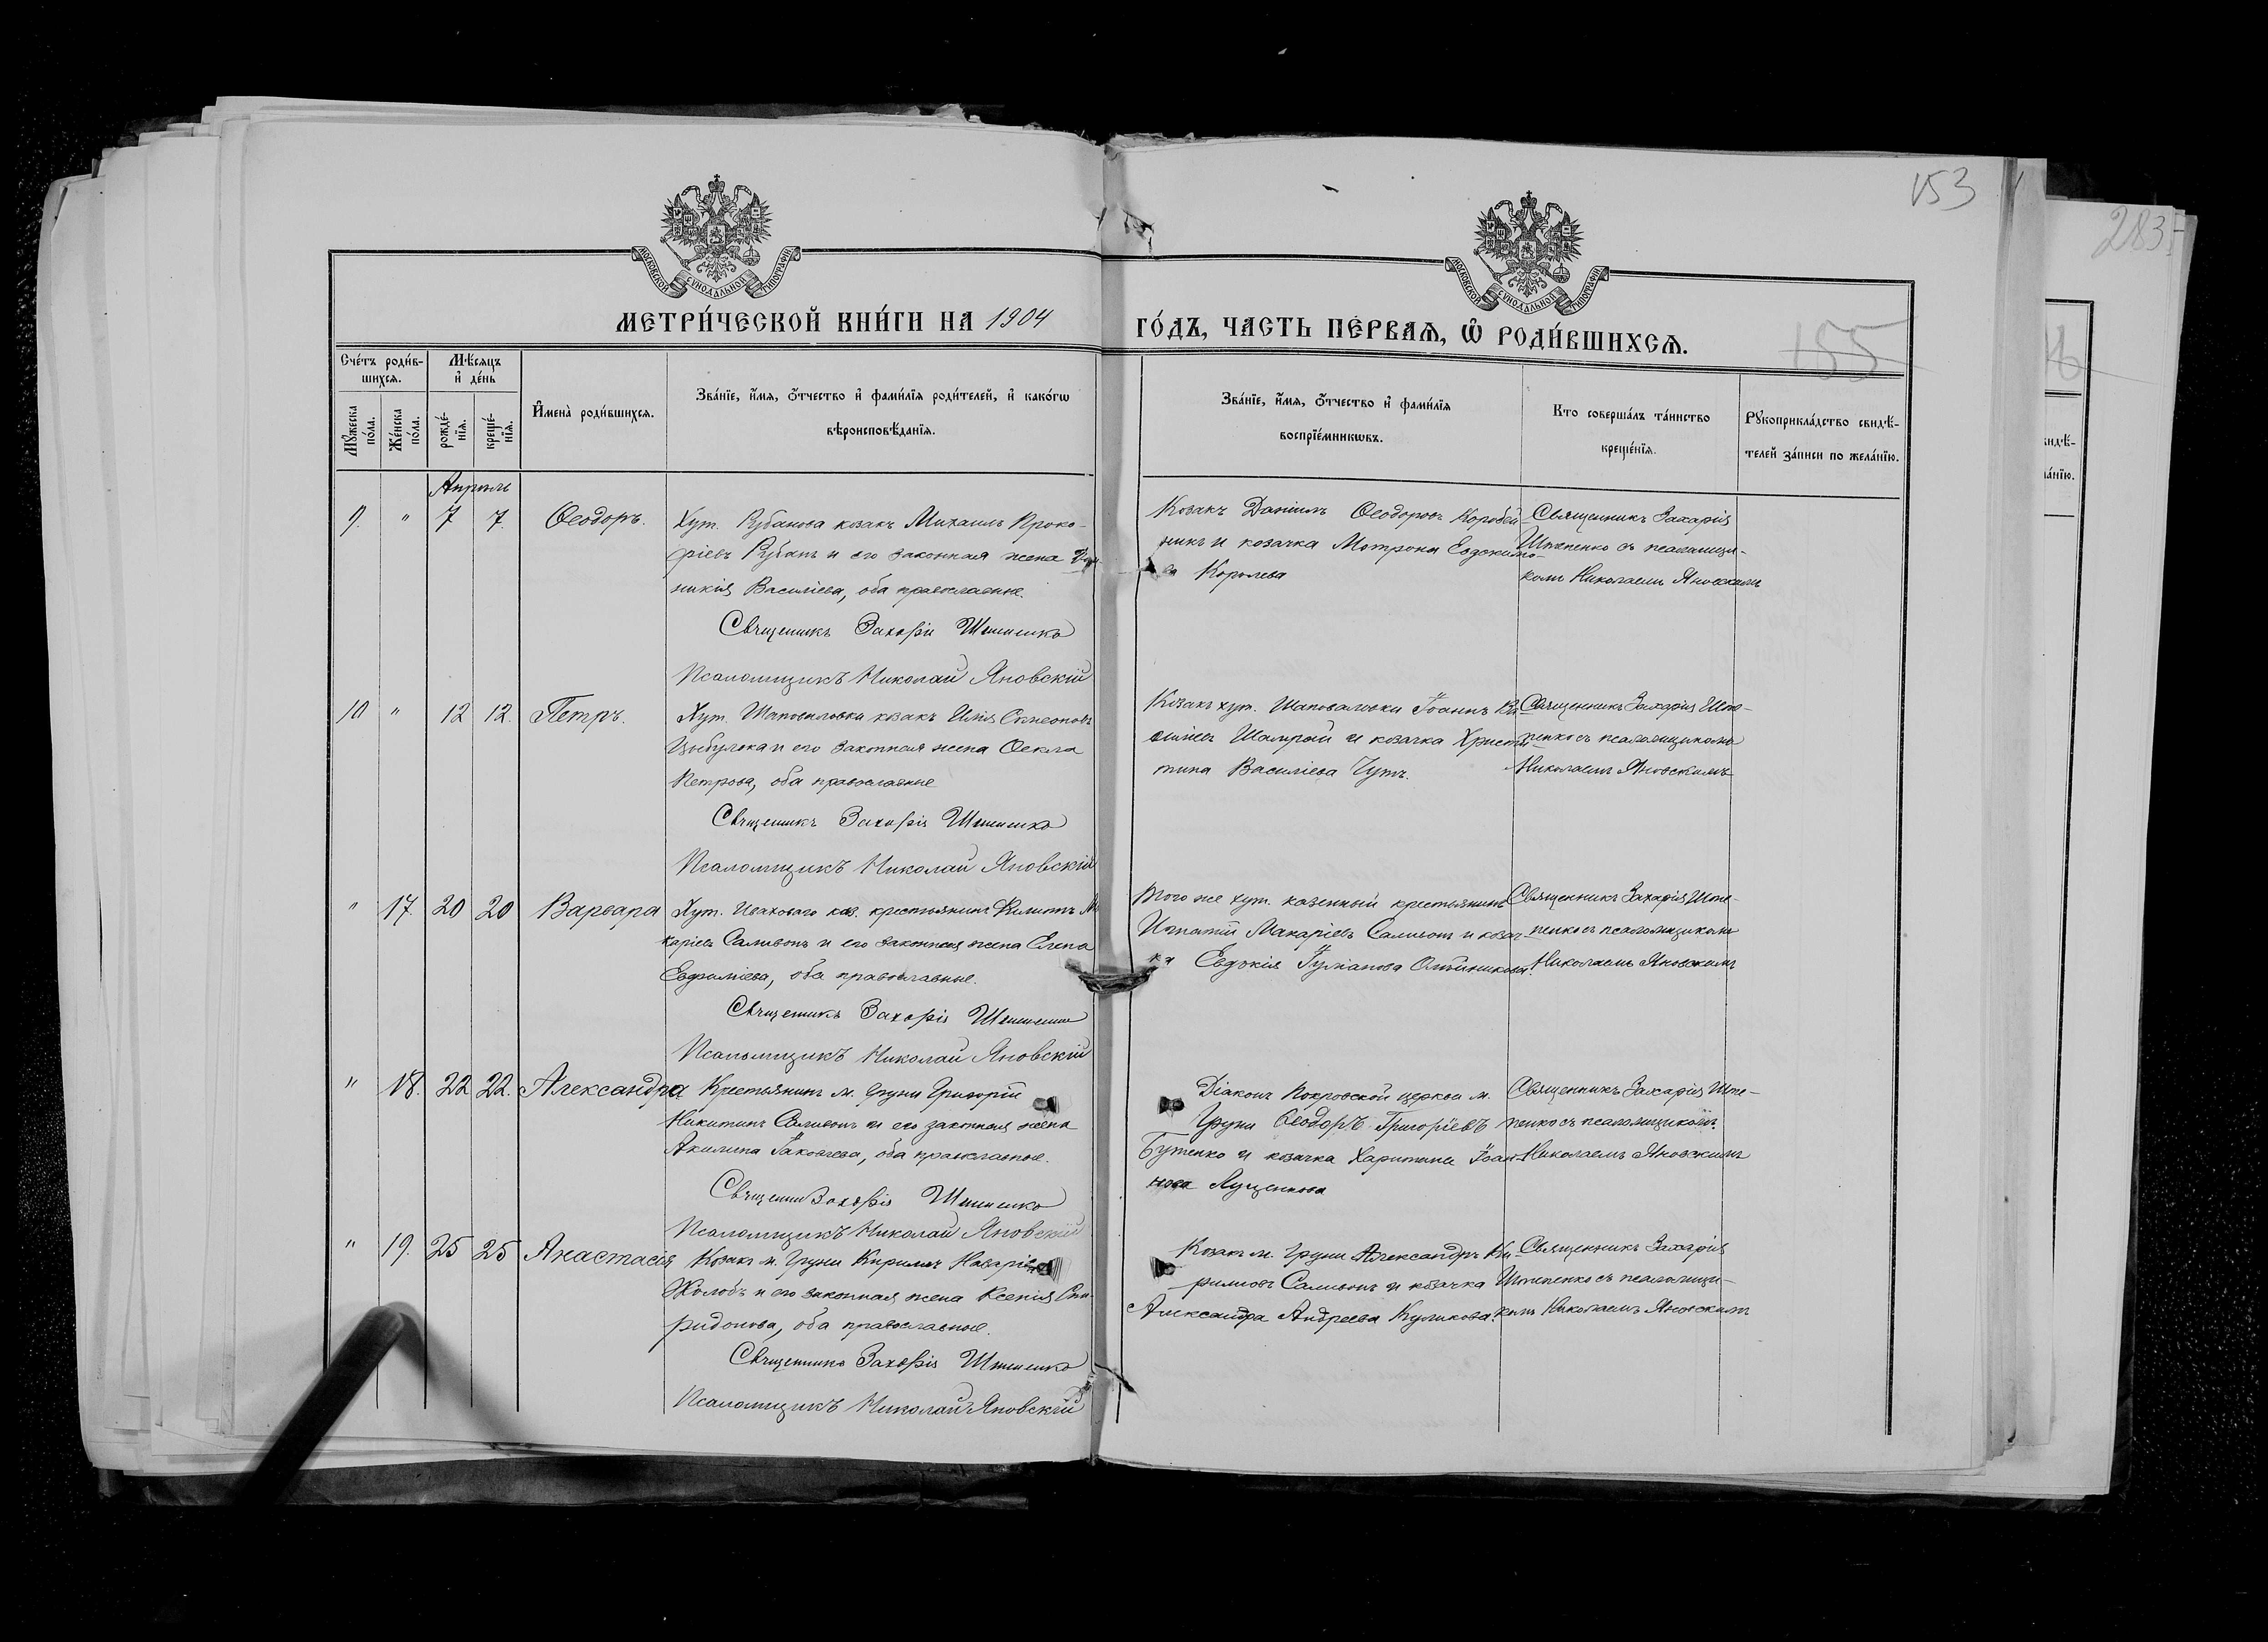 153
283
МОСКОВСКОЙ СѴНОДАЛЬНОЙ ТИПОГРАФІИ
МОСКОВСКОЙ СѴНОДАЛЬНОЙ ТИПОГРАФІИ
МЕТРИ́ЧЕСКОЙ КНИ́ГИ НА 1904
ГО́ДЪ, ЧАСТЬ ПЕ́РВАѦ, Ѡ҆ РОДИ́ВШИХСѦ.
155
Сче́тъ роди́в-
шихсѧ.
Мѣ́сѧцъ
и҆ де́нь
Мꙋ́жеска
по́ла.
Же́нска
по́ла.
рожде́-
нїѧ.
креще́-
нїѧ.
И҆мена̀ роди́вшихсѧ.
Зва́нїе, и҆́мѧ, ѻ҆́тчество и҆ фами́лїѧ роди́телей, и҆ како́гѡ
вѣроисповѣ́данїѧ.
Зва́нїе, и҆́мѧ, ѻ҆́тчество и҆ фами́лїѧ
воспрїе́мникѡвъ.
Кто соверша́лъ та́инство
креще́нїѧ.
Рꙋкоприкла́дство свидѣ́-
телей за́писи по жела́нїю.
Апрѣль
9. " 7 7. Ѳеодоръ.
Хут. Рубанова козакъ Михаилъ Проко-
ріевъ Рубанъ и его законная жена
никія Василіева, оба православные.
Священникъ Захарія Штепенко
Псаломщикъ Николай Яновскій
Козакъ Даніилъ Ѳеодоровъ Коробей-
никъ и козачка Мотрона Евдокимо-
ва Королева
Священникъ Захарія
Штепенко съ псаломщи-
комъ Николаемъ Яновскимъ
10 " 12 12. Петръ.
Хут. Шаповаловки козакъ Илія Симеоновъ
Цыбулька и его законная жена Ѳекла
Петрова, оба православные
Священникъ Захарія Штепенко
Псаломщикъ Николай Яновскій
Козакъ хут. Шаповаловки Іоаннъ Ва-
силіевъ Шамрай и козачка Христи-
тина Василіева Гутъ.
Священникъ Захарія Ште-
пенко съ псаломщикомъ
Николаемъ Яновскимъ
" 17. 20 20 Варвара
Хут. каз. крестьянинъ Филиппъ Ма
каріевъ Саливонъ и его законная жена Елена
Евфиміева, оба православные.
Священникъ Захарія Штепенко
Псаломщикъ Николай Яновскій
Того же хут. казенный крестьянинъ
Игнатій Макаріевъ Саливонъ и козач-
ка Евдокія
Священникъ Захарія Ште-
пенко съ псаломщикомъ
Николаемъ Яновскимъ
" 18. 22 22. Александра
Крестьянинъ м. Груни Григорій
Никитинъ Саливонъ и его законная жена
Акилина Іаковлева, оба православные.
Священникъ Захарія Штепенко
Псаломщикъ Николай Яновскій
Діаконъ Покровской церкви м.
Груни Ѳеодоръ Григоріевъ
Бутенко и козачка Харитина Іоан-
нова Лущенкова
Священникъ Захарія Ште-
пенко съ псаломщикомъ
Николаемъ Яновскимъ
" 19. 25 25 Анастасія
Козакъ м. Груни Кириллъ Назаріевъ
Жолобъ и его законная жена Ксенія Спи-
ридонова, оба православные.
Священникъ Захарія Штепенко
Псаломщикъ Николай Яновскій
Козакъ м. Груни Александръ Ки-
рилловъ Саливонъ и козачка
Александра Андреева Куликова.
Священникъ Захарія
Штепенко съ псаломщи-
комъ Николаемъ Яновскимъ